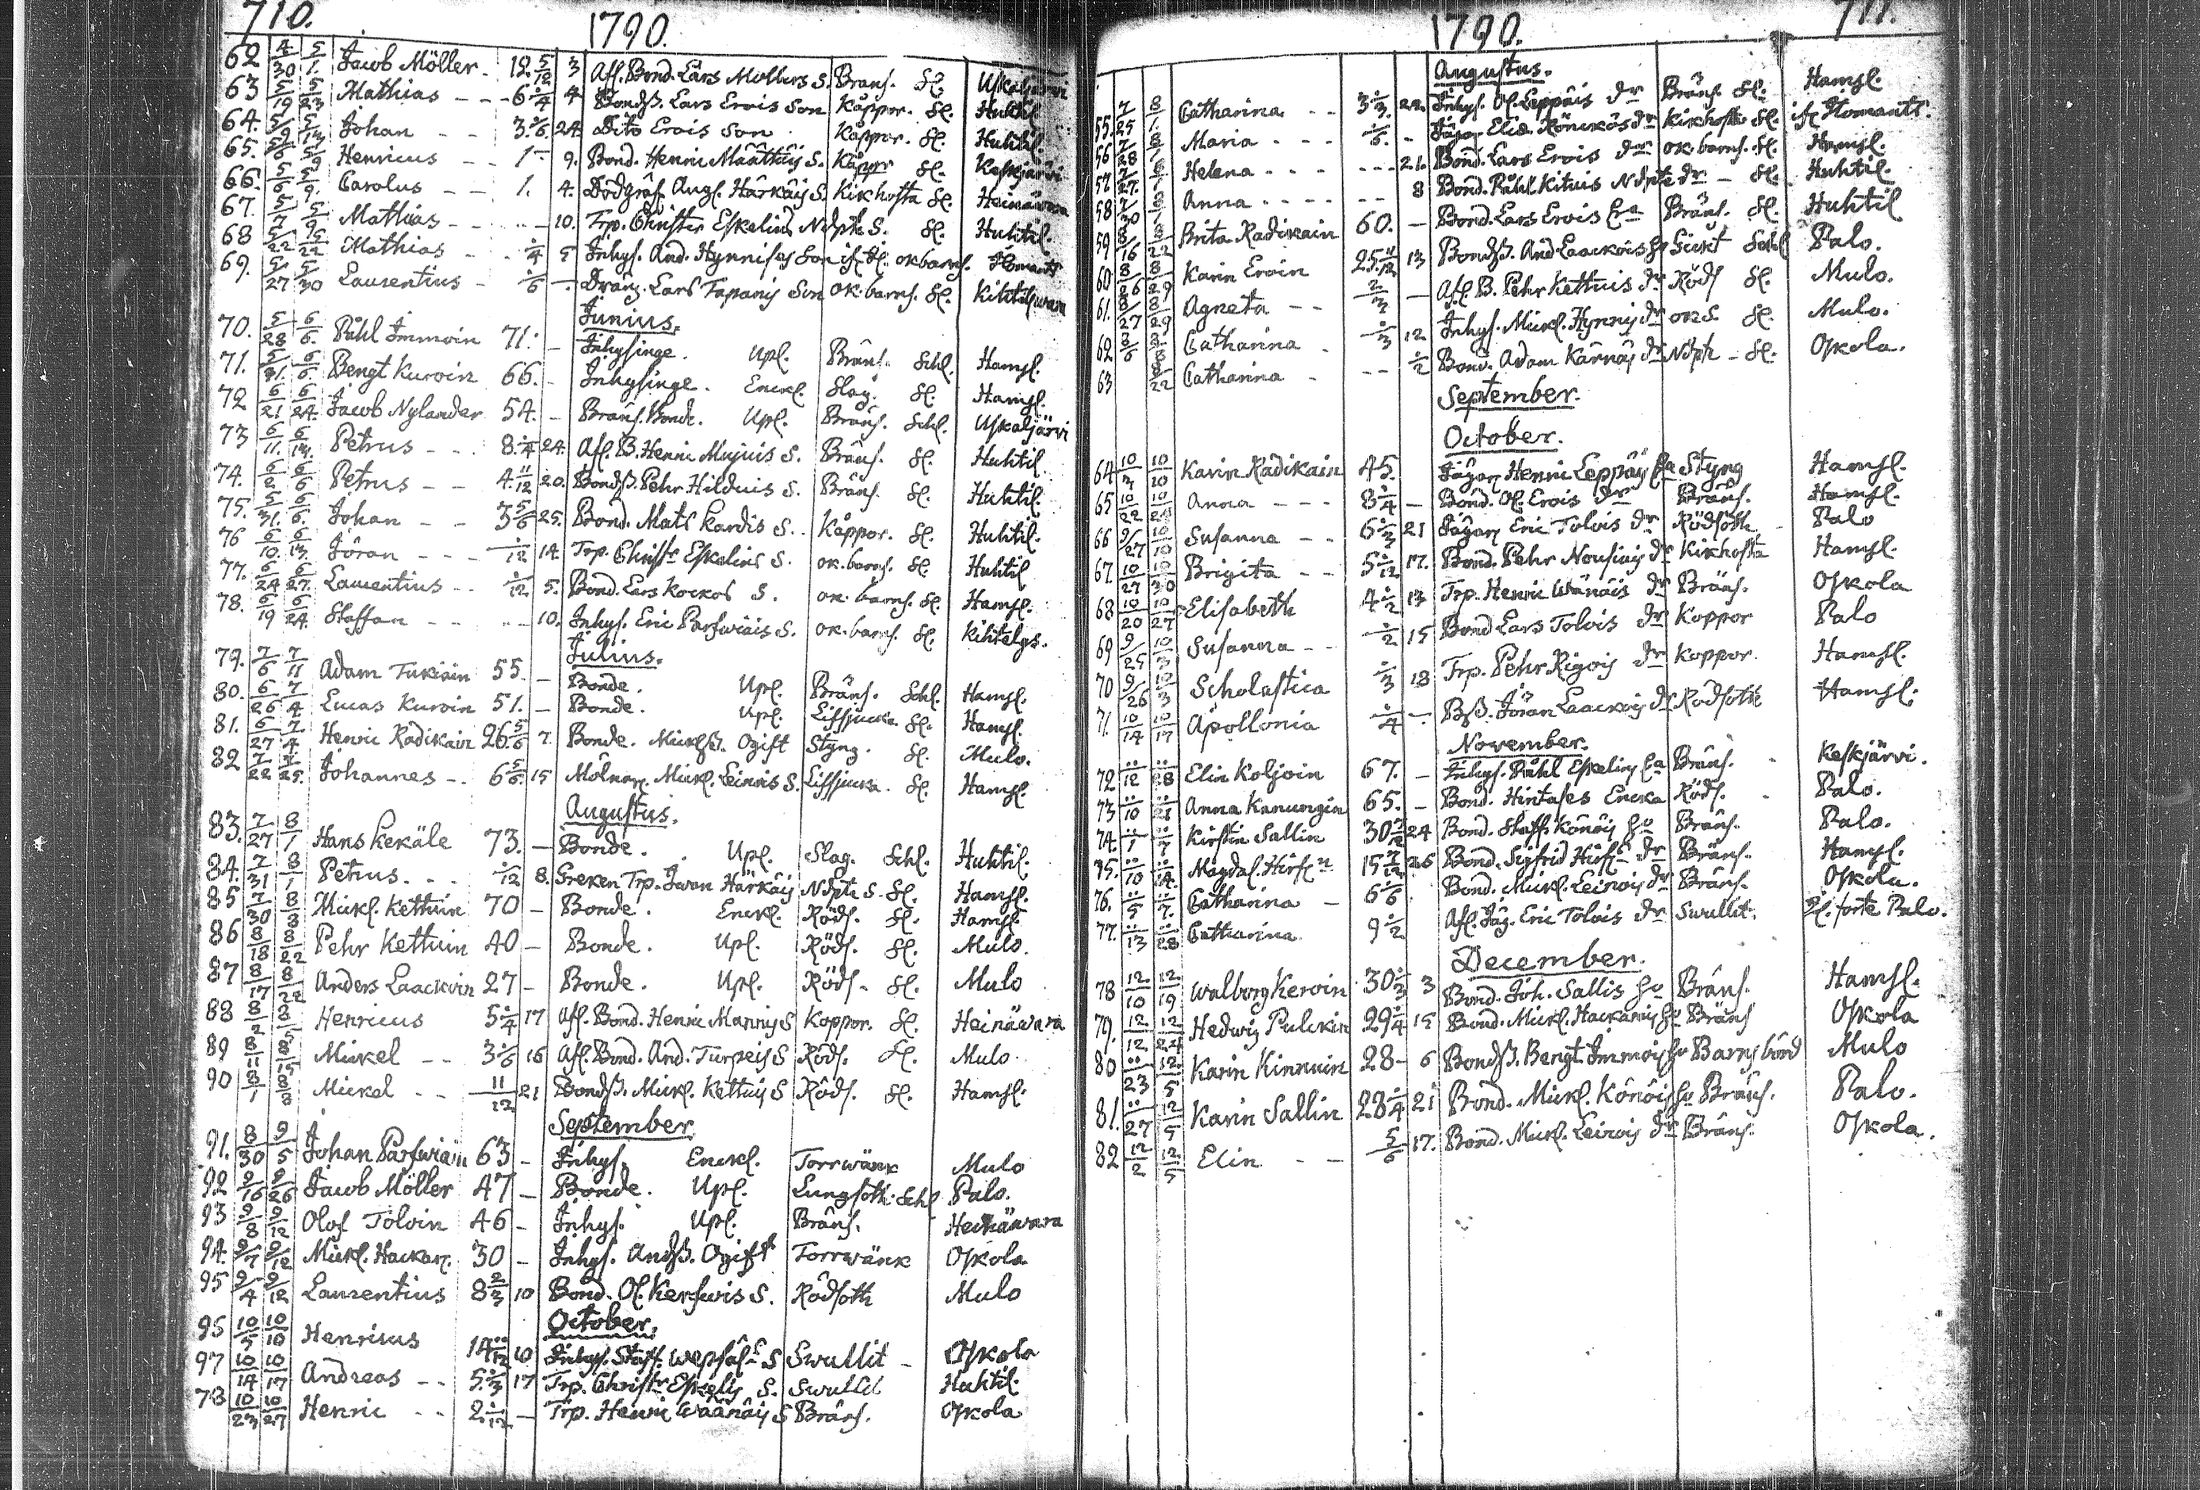 710. 1790.
62 4/30 5/1. Jacob Möller - 12 5/12 3 Afl. Bond. Lars Möllers S. Bränf. Sl. Uskaljärvi
63 5/19 5/23 Mathias - - - 6 ·/4 4 Bondß. Lars Erois Son Kåppor. Sl. Huhtil.
64. Johan - - 3 ·/6. 24 Dito Erois Son Kåppor. Sl. Huhtil.
65. Henricus - - 1 - 9. Bond. Henric Määttäis S. Kåppr Sl. Keskjärvi
66. 5/6 5/9. Carolus - - 1. 4. Dödgräf. Augl. Härkäis S. Kikhosta Sl. Heinäwara
67. Mathias - - - 10. Trp. Christer Eskelins Ndpte S. Sl. Huhtil.
68 5/22 Mathias - - ·/4 5 Inhys. And. Hynnises Son if. Sl. ok. barns. Ilomants
69. 5/27 5/30 Laurentius - ·/6 - Dräng. Lars Tapanis Son ok. barns. Sl. Kihtelyswara
Junius.
70. 5/28 6/6. Påhl Immoin 71. - Inhysinge. Upl. Bränf. Schl. Hamsl.
71. 5/31. 6/6 Bengt Kuroin 66. - Inhysinge. Enckl. Slag. Sl. Hamsl.
72 6/21 6/24. Jacob Nylander 54. - Bränf. Bonde. Upl. Bränf. Schl. Uskaljärvi
73 6/11. 6/13. Petrus - - - 8 ·/4 24. Afl. B. Henric Mujuis S. Bränf. Sl. Huhtil.
74. 6/2 6/6 Petrus - - 4 11/12 20. Bondß. Pehr Hilduis S. Bränf. Sl. Huhtil.
75. 5/31. 6/6. Johan - - 3 5/6 25. Bond. Mats Kardis S. Kåppor. Sl. Huhtil.
76 6/10. 6/13. Jöran - - - ·/12 14. Trp. Christr Eskelins S. ok. barns. Sl. Huhtil
77. 6/24 6/27. Laurentius - - ·/12 5. Bond. Lars Kockos S. ok. barns. Sl. Hamsl.
78. 6/19 6/24. Staffan - - - - 10. Inhys. Eric Parfwiäis S. ok. barns. Sl. Kihtelys.
Julius.
79. 7/6 7/11 Adam Tukiain 55. - Bonde. Upl. Bränf. Schl. Hamsl.
80. 6/26 7/4 Lucas Kuroin 51. - Bonde. Upl. Liffsjucka Sl. Hamsl.
81. 6/27 7/4 Henric Radikain 26 5/6 7. Bonde. Mickßß. Ogift Styng. Sl. Mulo.
82 7/22 7/25. Johannes - . 6 5/6. 15 Mölnar. Mick. Leinois S. Liffsjucka. Sl. Hamsl.
Augustus.
83. 7/27 8/1 Hans Kekäle 73. - Bonde. Upl. Slag. Schl. Huhtil.
84. 7/31 8/1 Petrus. - - - ·/12 8. Greken Trp. Iwan Härkäis Ndpte S. Sl. Hamsl.
85 7/30 8/8 Mickl. Kettuin 70 - Bonde. Enckl. Rödf. Sl. Hamsl.
86 8/18 8/22 Pehr Kettuin 40 - Bonde. Upl. Rödf. Sl. Mulo.
87 8/17 8/22 Anders Laackoin 27 - Bonde. Upl. Rödf. Sl. Mulo
88 Henricus 5 ·/4 17 Afl. Bond. Henric Mannis S Koppor. Sl. Heinäwara
89 8/11 8/15 Mickel - - 3 ·/6 16 Afl. Bond. And. Turpeis S Rödf. Sl. Mulo
90 8/1 8/8 Mickel - - 11/12 21 Bondß. Mick. Kettuis S Rödf. Sl. Hamsl.
September
91. 8/30 9/5 Johan Parfwiäin 63 - Inhys. Enckl. Torrwärk Mulo
92 9/16 9/26 Jacob Möller 47 - Bonde. Upl. Lungsoth. Schl Palo.
93 9/8 9/12 Olof Tolvin 46 - Inhys. Upl. Bränf. Heinäwara
94. 9/7 9/12 Mickl. Hackar. 30 - Inhys. Andß. Ogift Torrwärk Oskola
95 9/4 9/12 Laurentius 8 2/3 10 Bond. Ol. Kerfwis S. Rödsoth Mulo
October.
96 10/5 10/10 Henricus 14 ··/12 10 Inhys. Staff. S Swullit - Oskola
97 10/14 10/17 Andreas - - 5 ·/3 17 Trp. Christr Eskelis S. Swullit Huhtil.
98 10/23 10/27 Henric - - 2 ·/12 - Trp. Henric Wäänäis S Bränf. Oskola
1790. 711.
Augustus.
55. 7/25 8/1 Catharina - - 3 ·/3. 22. Inhys. Ol. Leppäis dr Bränf. Sl. Hamsl.
56 7/28 Maria - - - ·/6. - Jägar Elias Rönckös dr Kikhosta Sl. if. Ilomants.
57 7/27. Helena - - - - - - 21. Bond. Lars Erois dr ok barns. Sl. Hamsl.
58 7/30 Anna - - - - - - 8 Bond. Påhl Kituis Ndpte dr - Sl. Huhtil.
59 8/16 8/22 Brita Radikain 60. - Bond. Lars Erois Enka Bränf. Sl. Huhtil
60 8/26 8/29 Karin Eroin 25 11/12 13 Bondß. And. Laackois hu Siukt Schl Palo.
61. 8/27 8/29 Agneta - - 2/3 - Afl. B. Pehr Kettuis dr Rödf Sl. Mulo.
62 8/6 8/8 Catharina - ·/3 12 Inhys. Mickl. Hynnis dr ok S. Sl. Mulo.
63 8/22 Catharina - - - ·/2 Bond. Adam Kärnäs dr Ndpte - Sl. Oskola.
September.
October.
64 10/3 10/10 Karin Radikain 45. Jägar Henric Leppäis Enka Styng Hamsl.
65 10/22 10/24 Anna - - - 8 ·/4 - Bond. Ol. Erois dr Bränf. Hamsl.
66 9/27 10/10 Susanna - - 6 ·/3 21 Jägar Eric Tolvis dr Rödsoth Palo
67. 10/27 10/30 Brigita - - 5 ·/12 17. Bond. Pehr Nousiais dr Kikhosta Hamsl.
68 10/20 10/27 Elisabeth 4 ·/2 13 Trp. Henric Wänäis dr Bränf. Oskola
69 9/25 10/3 Susanna - - ·/2 15 Bond Lars Tolvis dr Koppor Palo
70 9/26 10/3 Scholastica ·/3 18 Trp. Pehr Rigois dr Koppor. Hamsl.
71. 10/14 10/17 Apollonia ·/4 - Bß. Jöran Laackois dr Rödsoth Hamsl.
November.
72 ··/12 ··/28 Elin Koljoin 67. - Inhys. Påhl Eskelins Enka Bränf. Keskjärvi.
73 ··/10 ··/21 Anna Kanungia 65. - Bond. Hintases Encka Rödf. Palo.
74. ··/1 ··/7 Kirstin Sallin 30 7/12 24 Bond. Staff. Könöis hu Bränf. Palo.
75. ··/10 ··/14. Magdal. Hirfn 15 7/12 26 Bond. Sigfrid Hirf dr Bränf. Hamsl.
76. ··/5 ··/7. Catharina - 6 ·/6 Bond. Mickl. Leinois dr Bränf. Oskola.
77. ··/13 ··/28 Catharina 9 ·/2 Afl. Jäg. Eric Tolvis dr Swullit. Sl. forte Palo.
December.
78 12/10 12/19 Walborg Keroin 30 ·/3 3 Bond. Joh. Sallis hu Bränf. Hamsl.
79. 12/12 12/24 Hedwig Pulckin 29 ·/4 15 Bond. Mickl. Hackaris hu Bränf Oskola
80 ··/23 12/5 Karin Kinnuin 28 - 6 Bondß. Bengt Immois hu Barnsbörd Mulo
81. ··/27 12/5 Karin Sallin 28 ·/4 21 Bond. Mickl. Könöis hu Bränf. Palo.
82 12/2 12/5 Elin - - 5/6 17. Bond. Mickl. Leinois dr Bränf. Oskola.